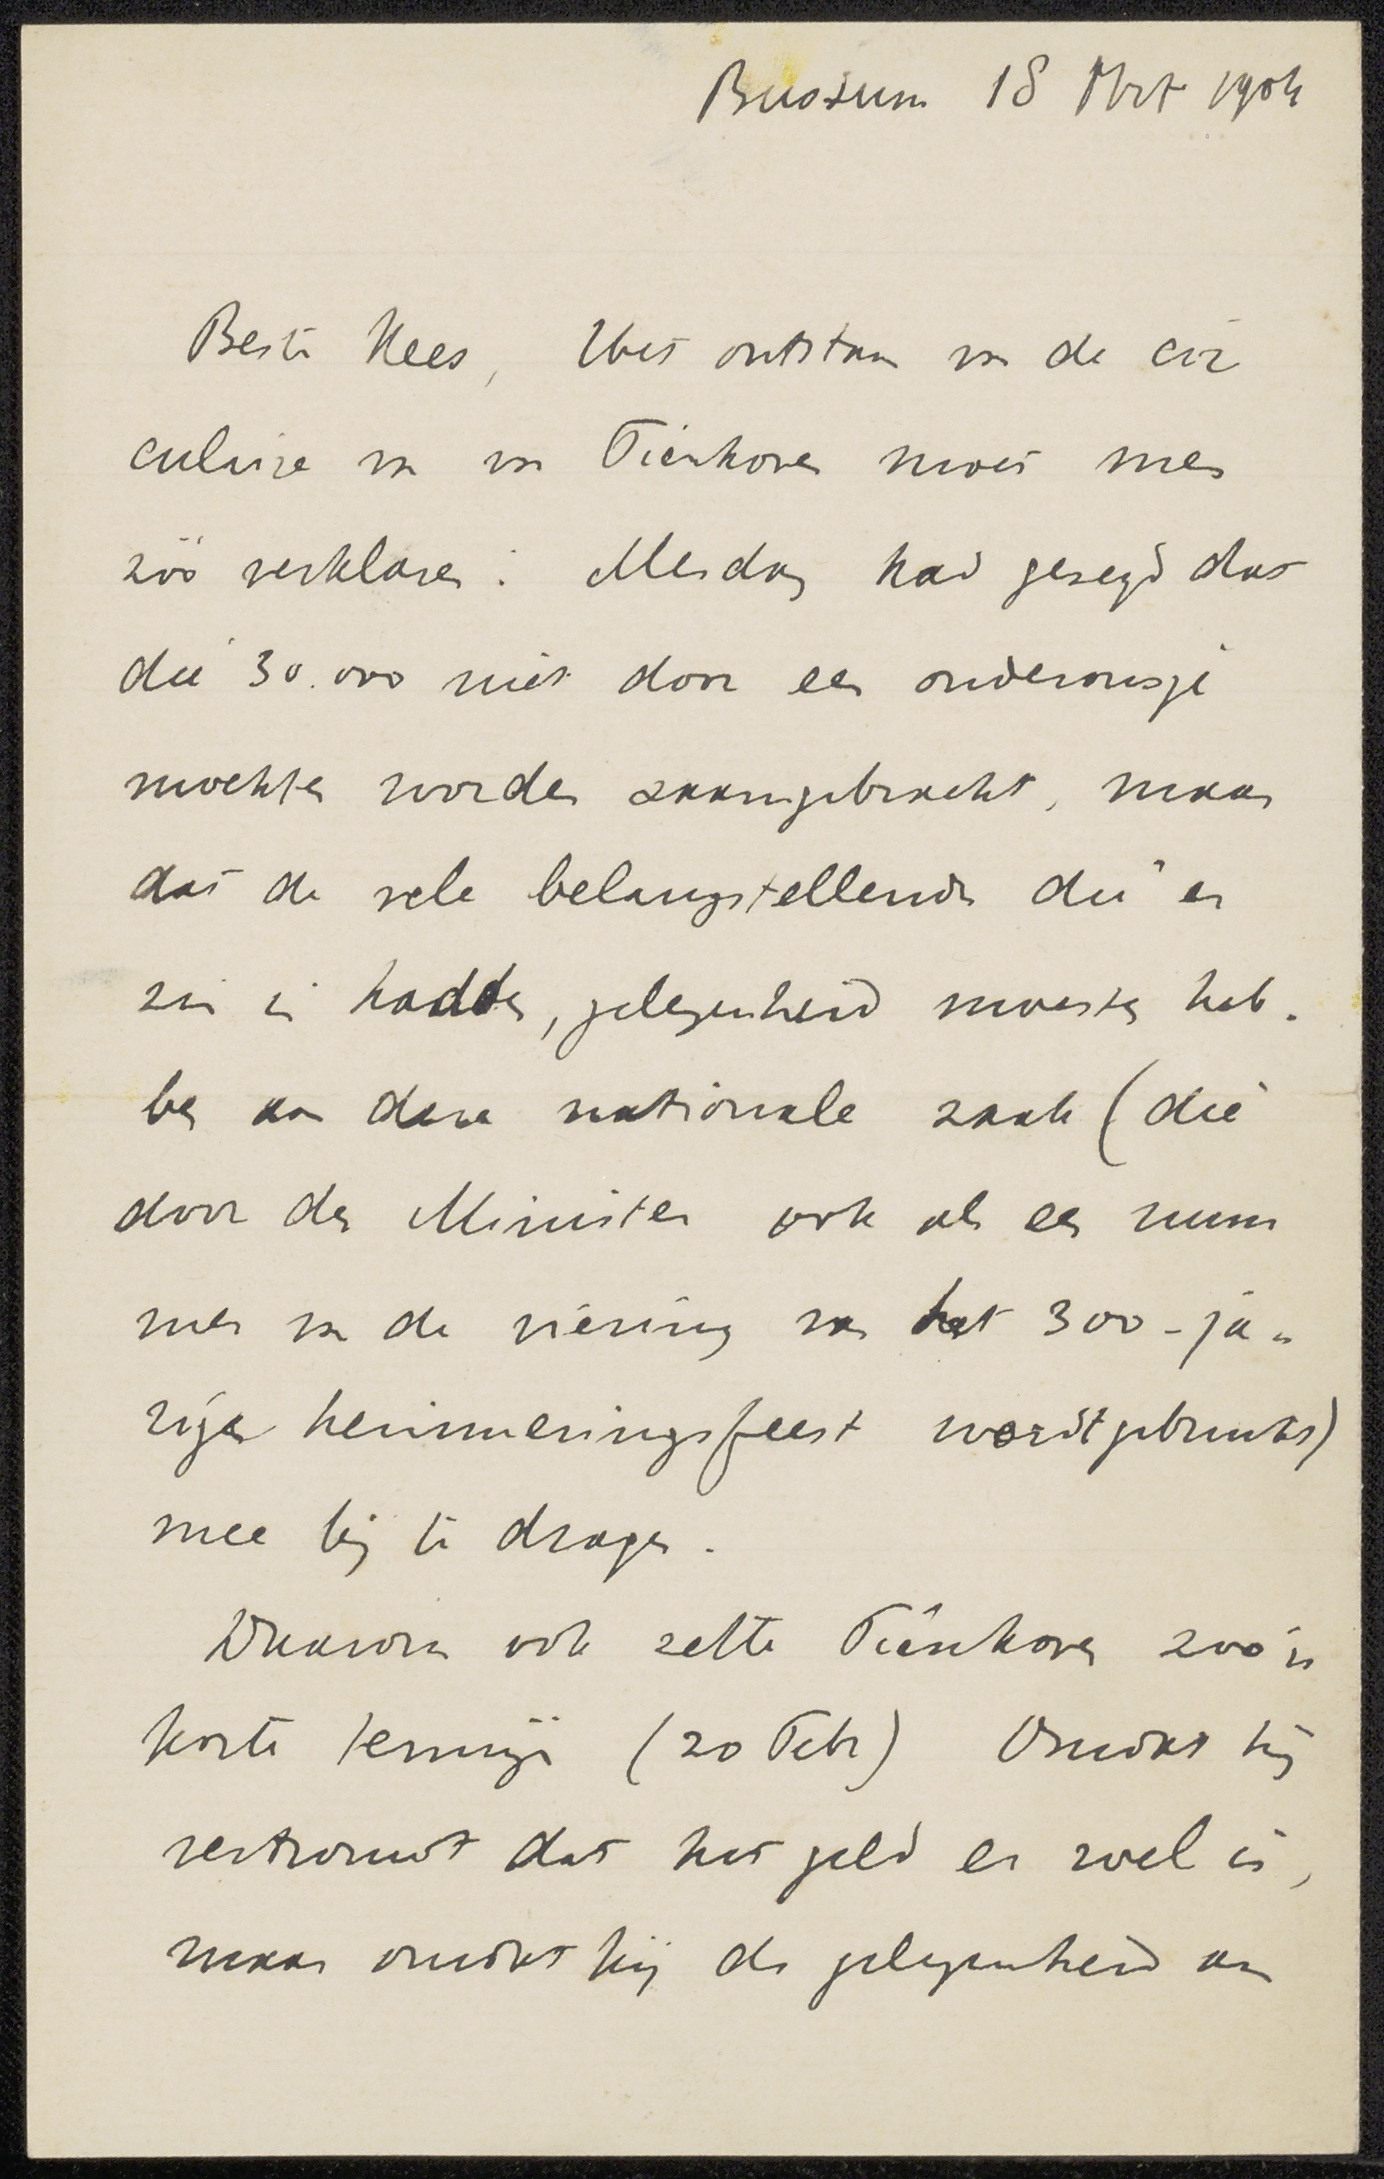 Bussum 18 Mrt 1904
Beste Kees, Het ontstaan van de cir
culaire van van Tienhoven moet men
zóó verklaren: Mesdag had gezegd dat
die 30.000 niet door een onderonsje
mochten worden saamgebracht, maar
dat de vele belangstellenden die er
zin in hadden, gelegenheid moesten heb-
ben aan deze nationale zaak (die
door den Minister ook als een num
mer van de viering van het 300-ja-
rige herinneringsfeest wordt gebruikt)
mee bij te dragen.
Daarom ook zette Tienhoven zoo'n
korte termijn (20 Febr) Omdat hij
vertrouwt dat het geld er wel is,
maar omdat hij de gelegenheid aan